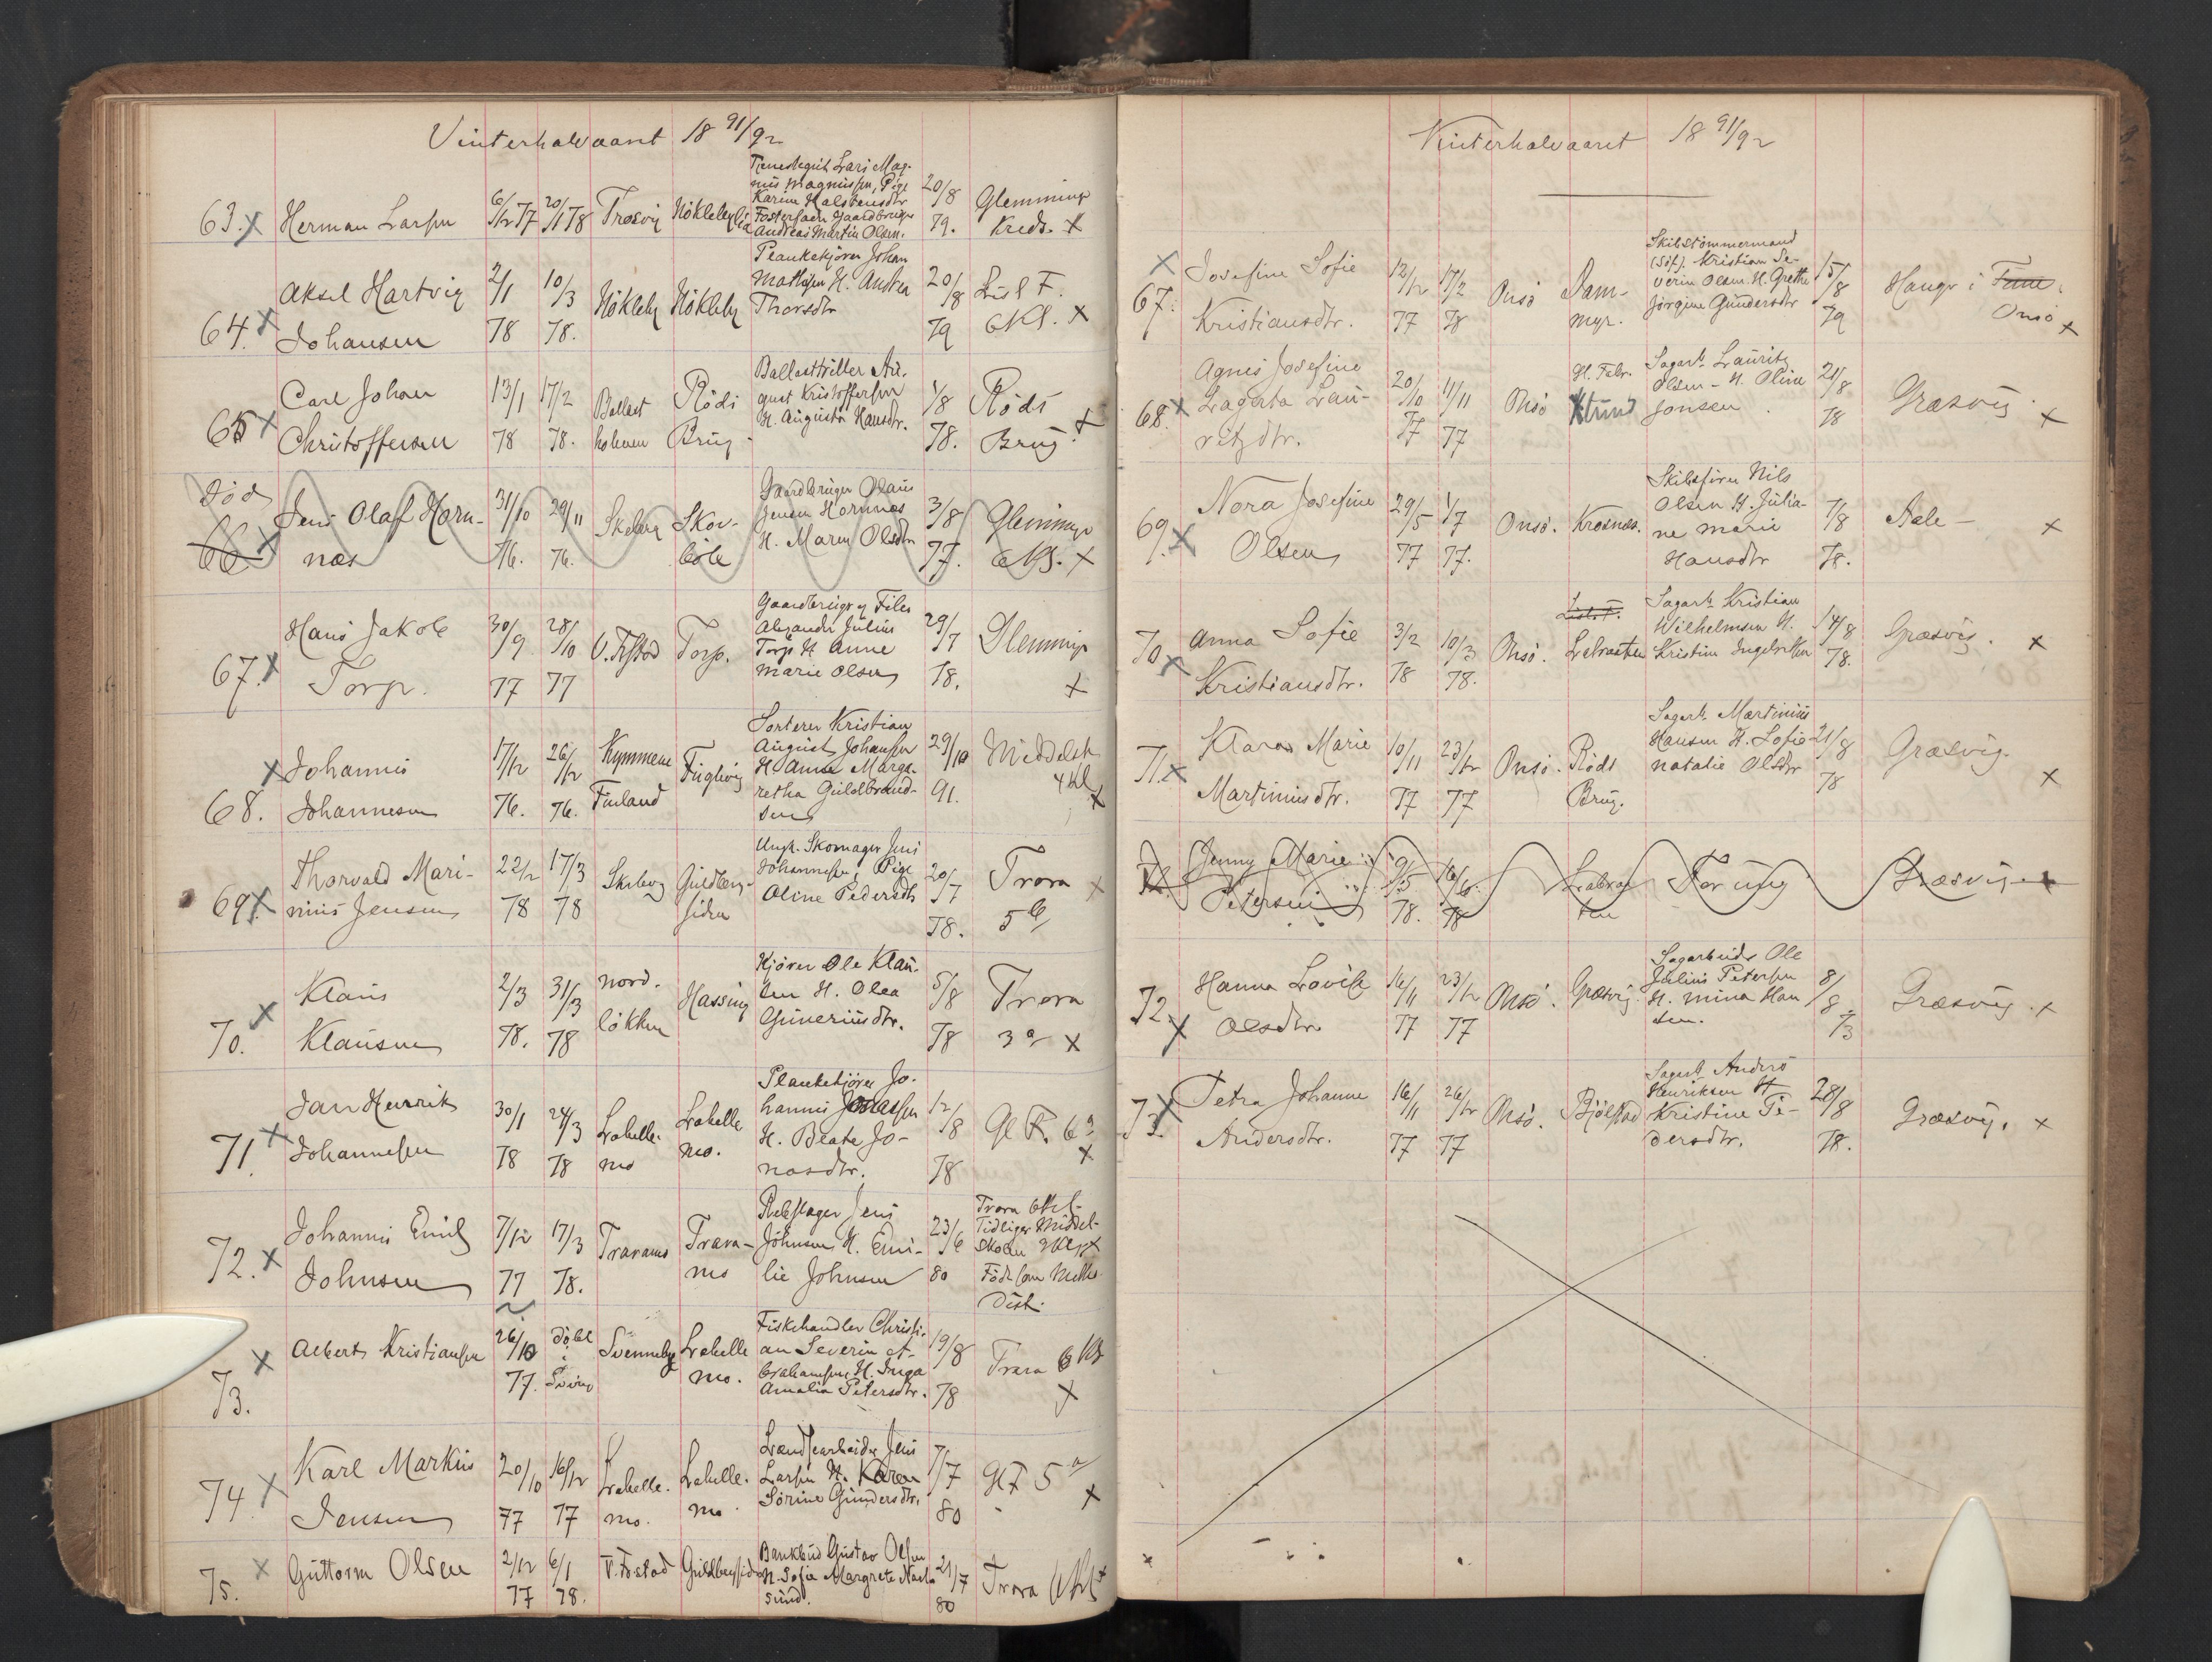 Vinterhalvaaret 18 91/92
63. x Herman Larsen 6/12 77 20/1 78 Trosvig Nökleby
Karine Halstensdtr
Fosterfader Gaardbruger
Andreas Martin Olsen.
20/8 79. Glemminge Kreds. x
64. x Aksel Hartvig Johansen 2/1 78 10/3 78. Nökleby Nökleby
Plankekjörer Johan
Mathisen H. Andrea
Thorsdtr
20/8 79 Lisl F. 6 Kl. x
65 x Carl Johan Christoffersen 13/1 78 17/2 78. Ballast holmen Röds Brug.
Ballasttriller Au-
gust Kristoffersen
H. Augusta Hansdtr.
1/8 78. Röds Brug. x
Död
66 x Jens Olaf Horn-
næs 31/10 76. 29/11 76. Skeberg Skov-
böle
Gaardbruger Olaus
Jensen Hornnæs
H. Maren Olsdtr
3/8 77. Glemminge 6 Kl. x
67. x Hans Jakob Torp. 30/9 77 28/10 77 V. Fr.stad Torp.
Alexander Julius
Torp H Anne
Marie Olsen
29/7 78. Glemminge x
68. x Johannes Johannesen 17/12 76. 26/12 76. Kymmene Finland Fuglevig
Sorterer Kristian
August Johansen
H. Anne Marga-
retha Guldbrand-
sen
29/10 91. Middelsk 4 Kl x
69. x Thorvald Mari-
nius Jensen 22/12 78 17/3 78 Skeberg Guldberg-
siden
Ungk. Skomager Jens
Johannesen, Pige
Oline Pedersdtr
20/7 78. Trara 5 b x
70. x Klaus Klausen 2/3 78. 31/3 78 Nord.
lökken Hassing
Kjörer Ole Klau-
sen H. Olea
Guneriusdtr.
5/8 78 Trara 3 a x
71. x Jan Henrik Johannesen 30/1 78 24/3 78 Labelle-
mo Labelle
mo.
Plankekjörer Jo-
hannes Jonassen
H. Beate Jo-
nasdtr.
12/8 78 Gl F. 6 a x
72. x Johannes Emil Johnsen 7/12 77 17/3 78. Traramo Trara-
mo
Rebslager Jens
Johnsen H. Emi-
lie Johnsen
23/6 80
Trara 6 Kl.
Tidligere Middel-
skolen
Födt som Meth.
Disk.
73. x Albert Kristiansen 26/10 77. Döbt i Sverig Svenneby Labelle
mo.
Fiskehandler Christi-
an Severin A-
brahamsen, H. Inga
Amalia Petersdtr.
19/8 78 Trara 6 Kl x
74. x Karl Markus Jensen 20/10 77 16/12 77 Labelle.
mo. Labelle.
mo
Landsearbeider Jens
Larsen H. Karen
Sörine Gundersdtr.
7/7 80 Gl F 5 a x
75. x Guttorm Olsen 2/12 77 6/1 78. V. Fr.stad Guldbergsiden
Bankbud Gustav Olsen
H. Sofie Margrete
sund.
21/7 80 Trara Kl x
Vinterhalvaaret 18 91/92
67. x Josefine Sofie Kristiansdtr. 12/12 77 17/2 78 Onsö Dam-
myr.
Skibstömmermand
(Söf.) Kristian Se-
verin Olsen. H. Grethe
Jörgine Gundersdtr
15/8 79 Hauge i Onsö x
68. x Agnes Josefine
Lagerta Lau-
ritzdtr. 20/10 77 11/11 77 Onsö Gl. Fabr. Strand
Sagarb. Lauritz
Olsen - H. Oline
Jonsen.
21/8 78 Græsvig. x
69. x Nora Josefine Olsen 29/5 77 1/7 77. Onsö. Krosnæs.
Skibsförer Nils
Olsen H. Julia-
ne Marie
Hansdtr
7/8 78. Aale - x
70 x Anna Sofie Kristiansdtr. 3/2 78 10/3 78. Onsö. Lisl. F. Labraaten
Sagarb. Kristian
Wilhelmsen H.
Kristine Ingebritsen
14/8 78. Græsvig. x
71. x Klara Marie Martiniusdtr. 10/11 77 23/12 77 Onsö. Röds
Brug.
Sagarb. Martinius
Hansen H. Sofie
Natalie Olsdtr
21/8 78 Græsvig. x
72. Jenny Marie Petersen 9/5 78. 16/6 78 Labraa
ten For ung Græsvig x
72. x Hanna Lovise Olsdtr 14/11 77 23/12 77 Onsö. Græsvig.
Sagarbeider Ole
Julius Petersen
H. Mina Han
sen.
8/8 73 Græsvig. x
73. x Petra Johanne Andersdtr. 16/11 77 26/12 77 Onsö. Bjölstad
Sagarb. Anders
Henriksen H
Kristine Pe-
dersdtr.
28/8 78. Græsvig. x